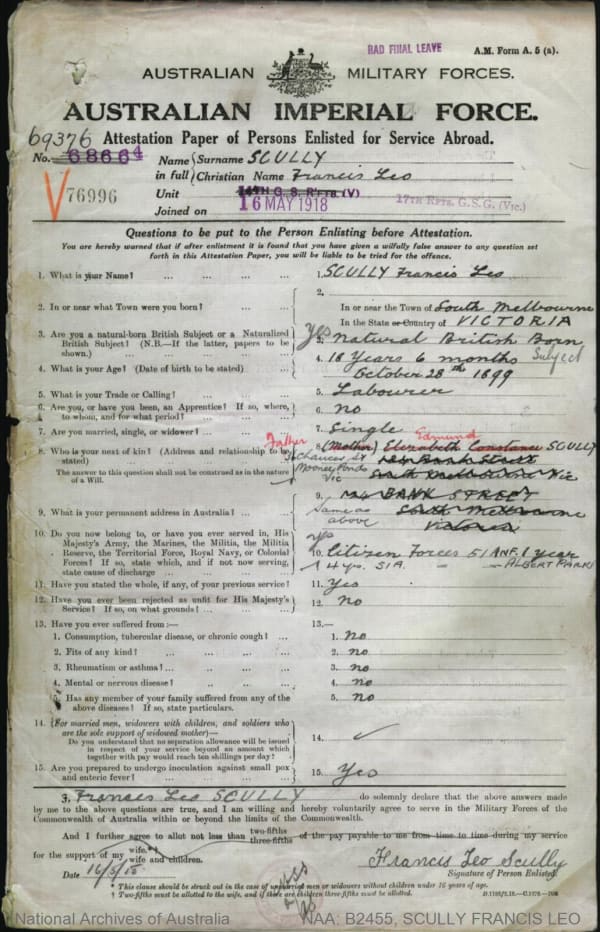 HAD FINAL LEAVE
A.M. Form A. 5 (a).
AUSTRALIAN MILITARY FORCES.
AUSTRALIAN IMPERIAL FORCE.
69376 Attestation Paper of Persons Enlisted for Service Abroad.
No. 68664 Name in full { Surname SCULLY
Christian Name Francis Leo
V76996
Unit 14TH G. S. R'FTS (V) 17TH RFTS. G.S.G. (VIC.)
Joined on 16 MAY 1918
Questions to be put to the Person Enlisting before Attestation.
You are hereby warned that if after enlistment it is found that you have given a wilfully false answer to any question set
forth in this Attestation Paper, you will be liable to be tried for the offence.
1. What is your Name? ... 1. SCULLY Francis Leo
2. In or near what Town were you born? ... 2. In or near the Town of South Melbourne
In the State or Country of VICTORIA
3. Are you a natural-born British Subject or a Naturalized
British Subject? (N.B.—If the latter, papers to be
shown.) ... yes 3. Natural British Born Subject
4. What is your Age? (Date of birth to be stated) ... 4. 18 Years 6 months
October 28th 1899
5. What is your Trade or Calling? ... 5. Labourer
6. Are you, or have you been, an Apprentice? If so, where,
to whom, and for what period? ... 6. No
7. Are you married, single, or widower? ... 7. Single
8. Who is your next of kin? (Address and relationship to be
stated) ... Father 8. (Mother) Elizabeth Constance Edmund SCULLY
The answer to this question shall not be construed as in the nature
of a Will.
Moonee Ponds
Vic
124 Bank Street
South Melbourne Vic
9. What is your permanent address in Australia? ... 9. 124 BANK STREET
South Melbourne
Victoria
Same as
above
10. Do you now belong to, or have you ever served in, His
Majesty's Army, the Marines, the Militia, the Militia
Reserve, the Territorial Force, Royal Navy, or Colonial
Forces? If so, state which, and if not now serving,
state cause of discharge ... yes 10. Citizen Forces 51 INF. 1 year
4 yrs. 51A. - - ALBERT PARK
11. Have you stated the whole, if any, of your previous service? 11. Yes
12. Have you ever been rejected as unfit for His Majesty's
Service? If so, on what grounds? ... 12. No
13. Have you ever suffered from:— 13.—
1. Consumption, tubercular disease, or chronic cough? ... 1. no
2. Fits of any kind? ... 2. no
3. Rheumatism or asthma? ... 3. no
4. Mental or nervous disease? ... 4. no
5. Has any member of your family suffered from any of the
above diseases? If so, state particulars. 5. no
14. (For married men, widowers with children, and soldiers who
are the sole support of widowed mother)—
Do you understand that no separation allowance will be issued
in respect of your service beyond an amount which
together with pay would reach ten shillings per day? ... 14. ✓
15. Are you prepared to undergo inoculation against small pox
and enteric fever? ... 15. Yes
I, Francis Leo SCULLY do solemnly declare that the above answers made
by me to the above questions are true, and I am willing and hereby voluntarily agree to serve in the Military Forces of the
Commonwealth of Australia within or beyond the limits of the Commonwealth.
And I further agree to allot not less than two-fifths three-fifths of the pay payable to me from time to time during my service
for the support of my wife.* † wife and children.
Date 16/5/18
Francis Leo Scully
Signature of Person Enlisted.
* This clause should be struck out in the case of unmarried men or widowers without children under 16 years of age.
† Two-fifths must be allotted to the wife, and if there are children three-fifths must be allotted.
National Archives of Australia
NAA: B2455, SCULLY FRANCIS LEO